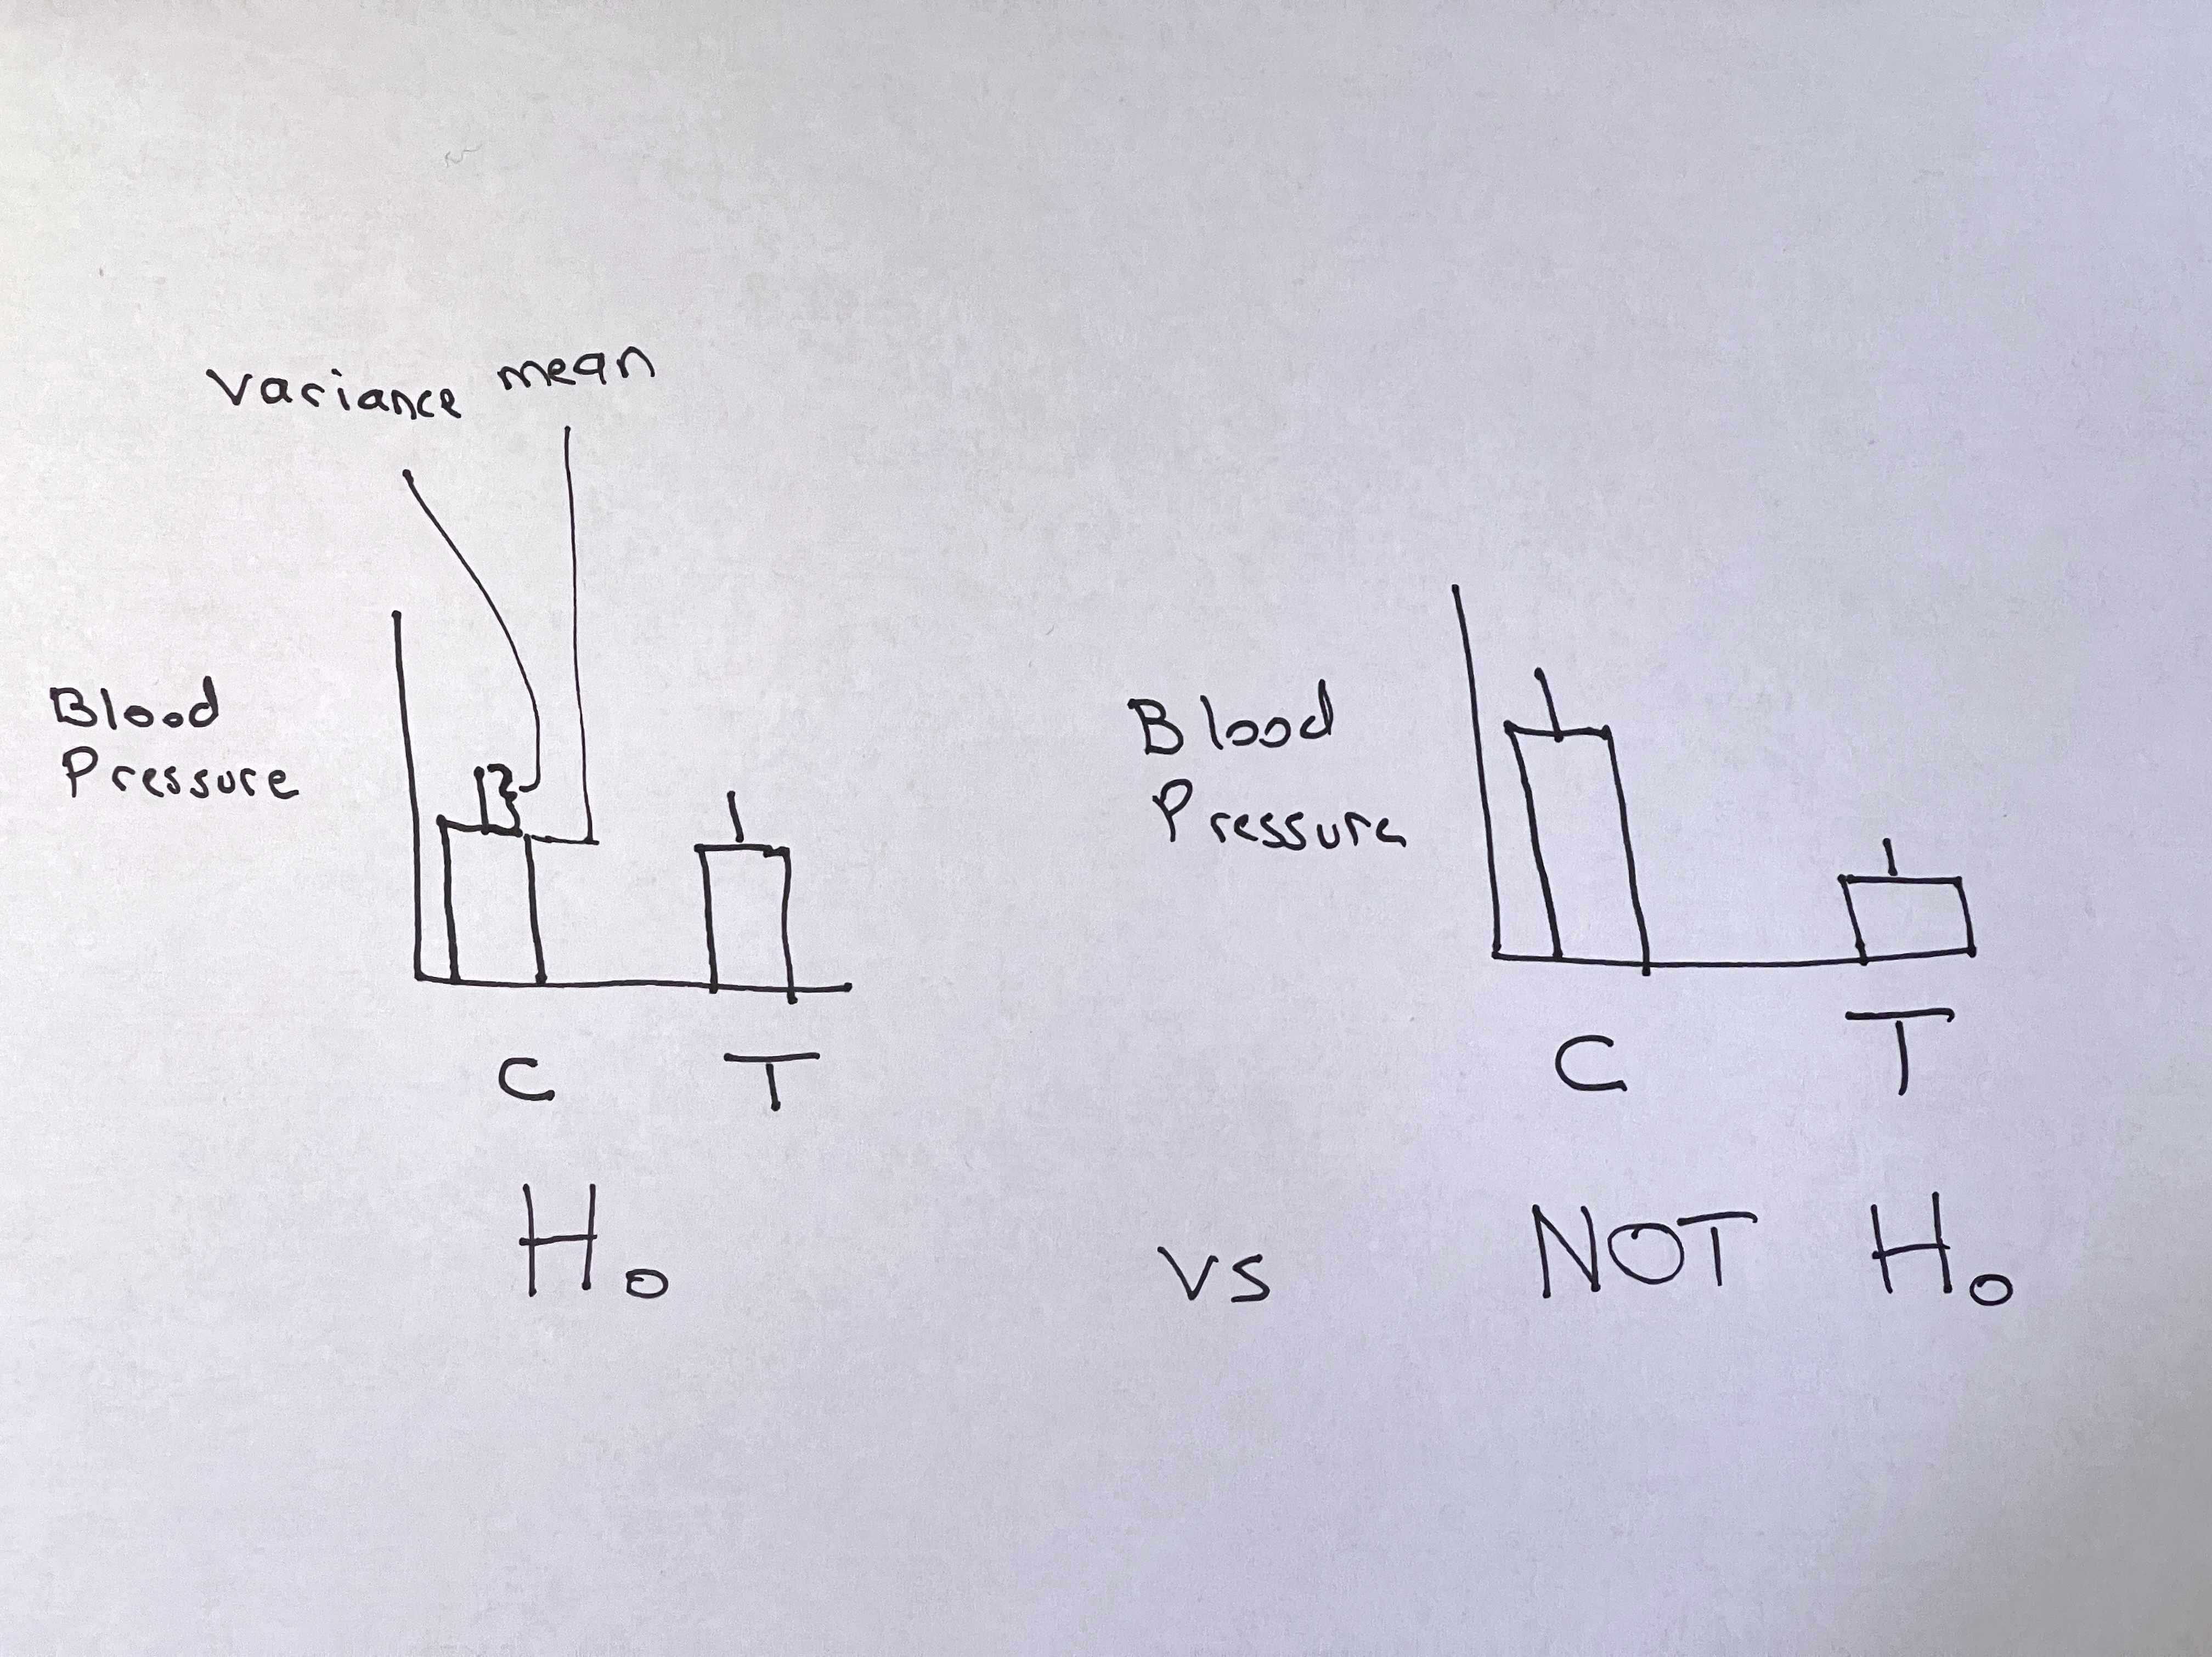 Variance mean
Blood
Pressure
C T
H₀
vs
Blood
Pressure
C T
NOT H₀